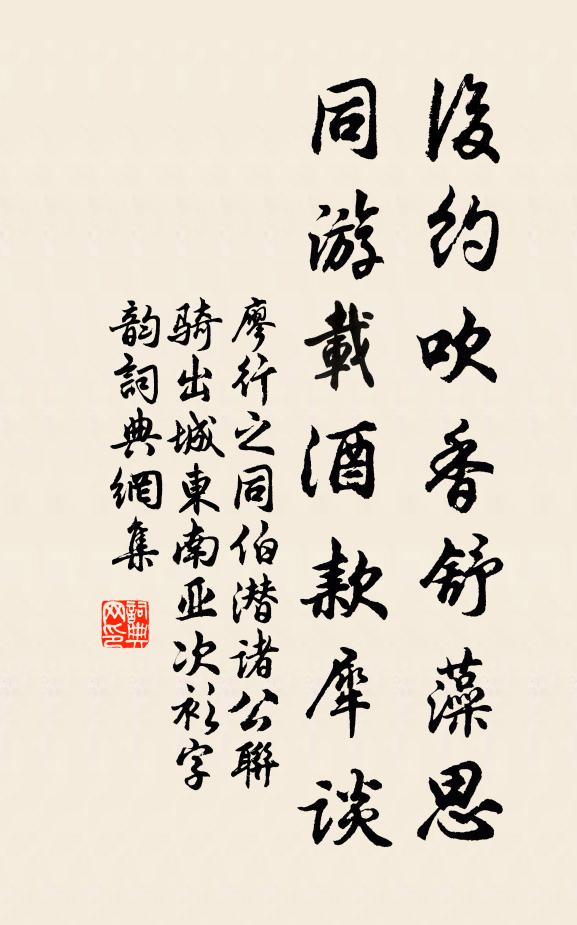 後約吹香舒藻思
同游載酒款犀談
廖行之同伯潜諸公聯
騎出城東南亚次衫字
韵詞典網集
詞典
网印